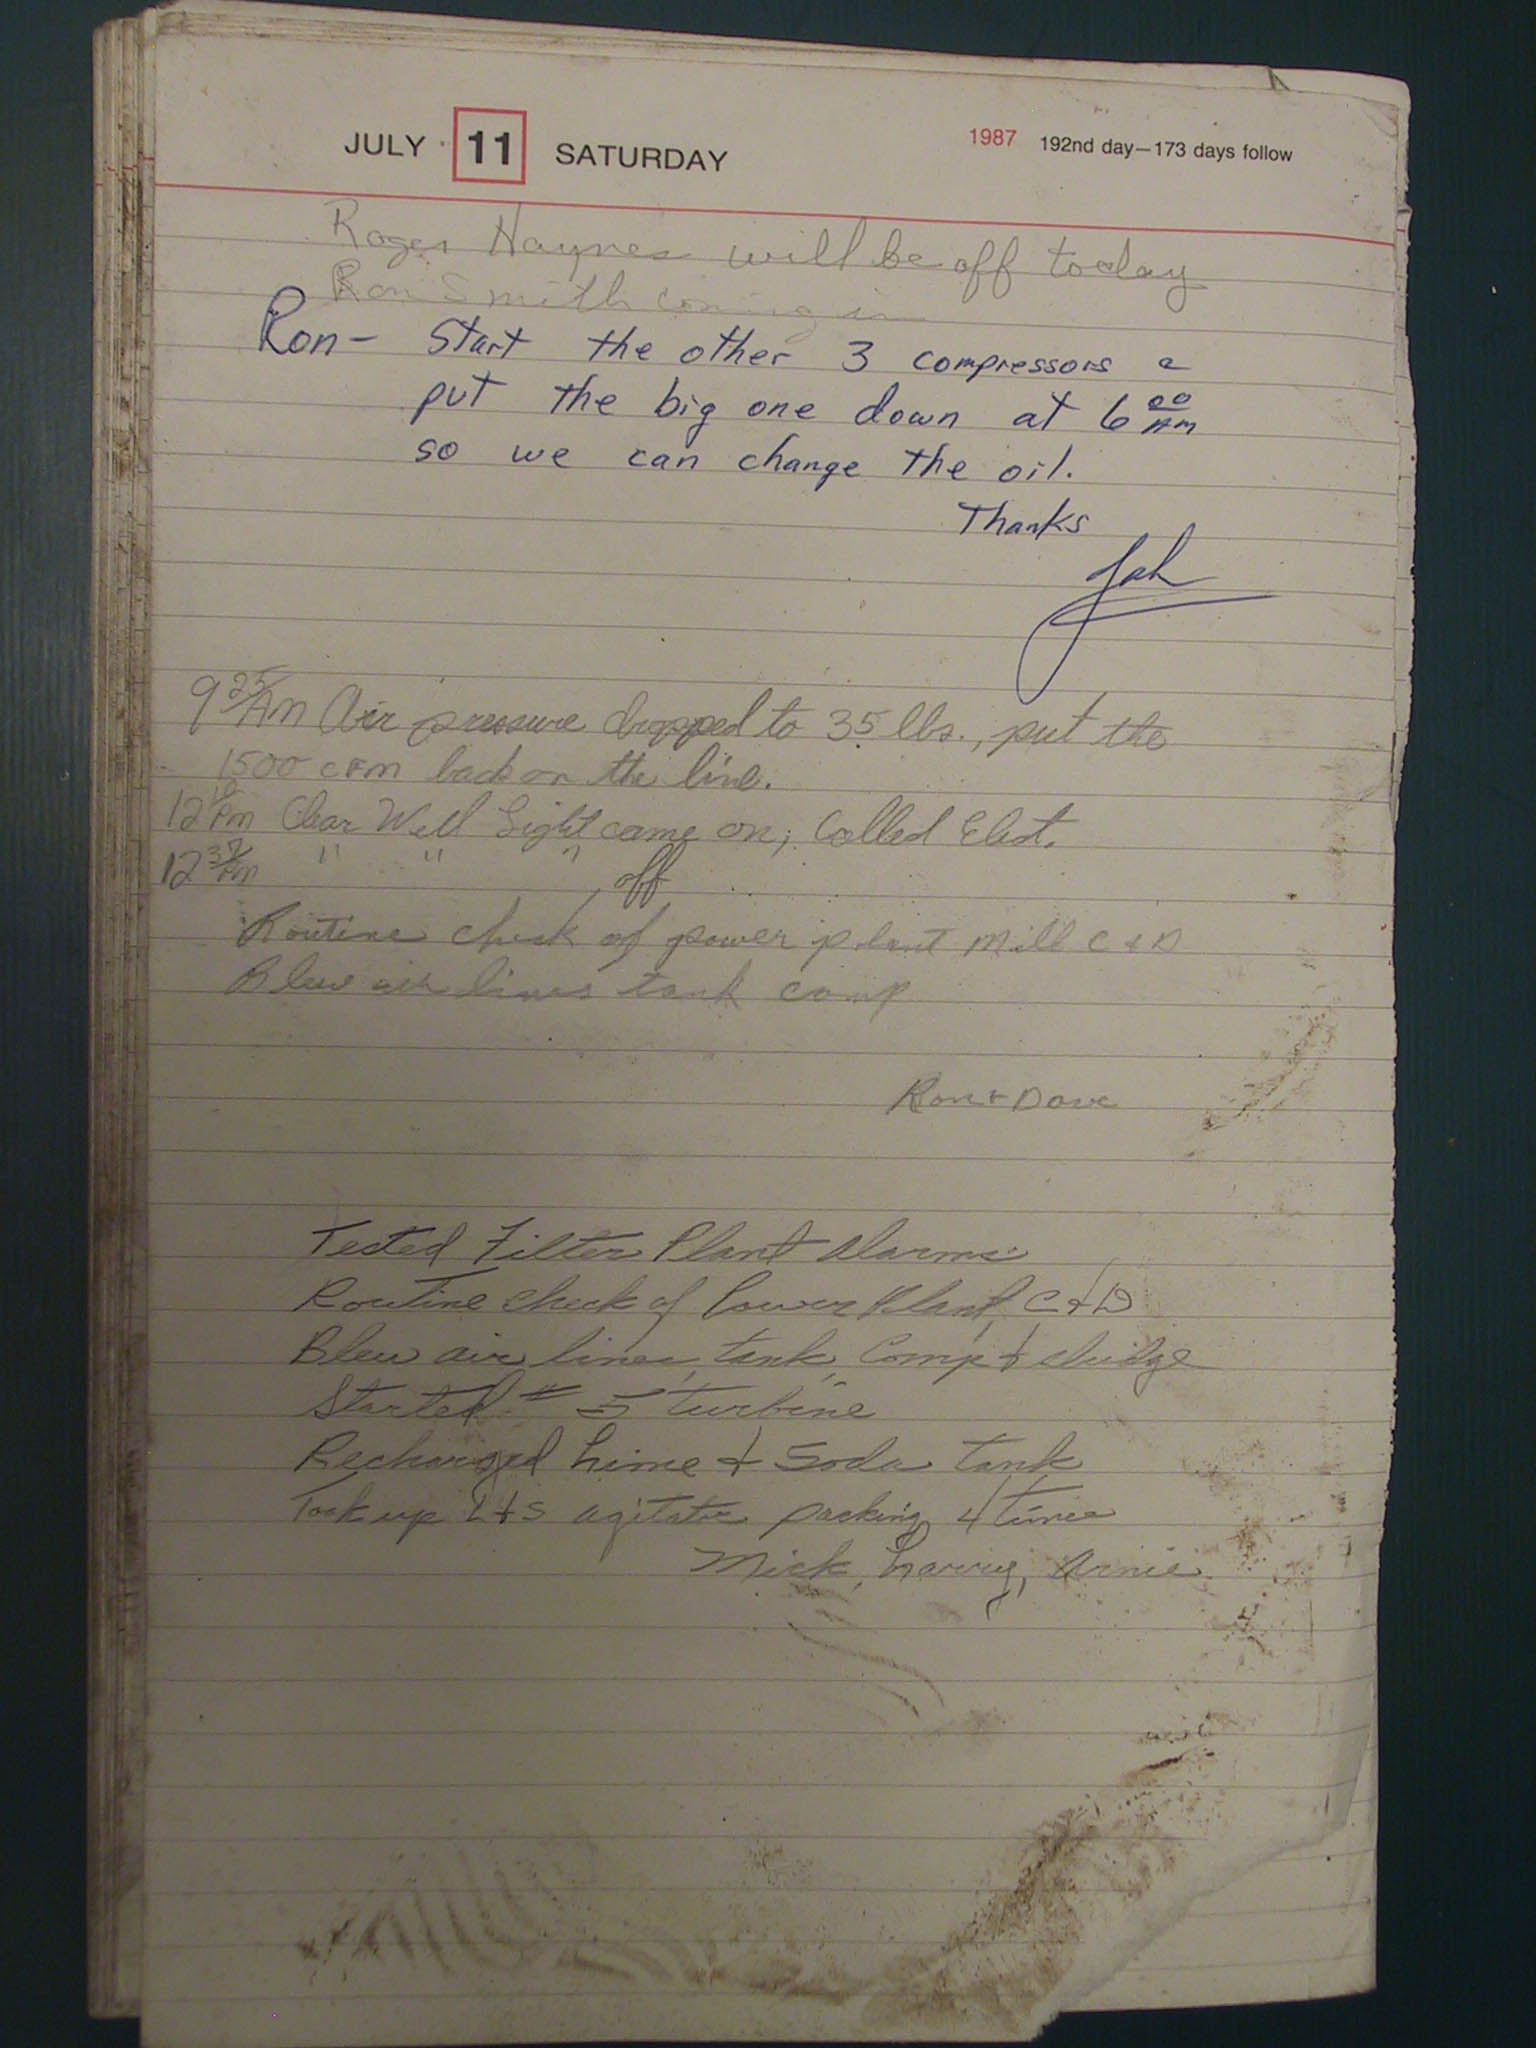 JULY 11 SATURDAY 1987 192nd day—173 days follow
Roger Haynes will be off today
Ron Smith coming in
Ron - Start the other 3 compressors &
put the big one down at 6 00 AM
so we can change the oil.
Thanks
9 25 AM Air pressure dropped to 35 lbs., put the
1500 CFM back on the line.
12 PM Clear Well Light came on, Called Elect.
12 37 PM " " " off
Routine check of power plant mill C & D
Blew air lines tank comp
Ron & Dave
Tested Filter Plant Alarms
Routine check of Power Plant, C & D
Blew air lines, tank, Comp & sludge
Started # 5 turbine
Recharged Lime & Soda tank
Took up L & S agitator packing 4 times
Mick, Larry, Arnie